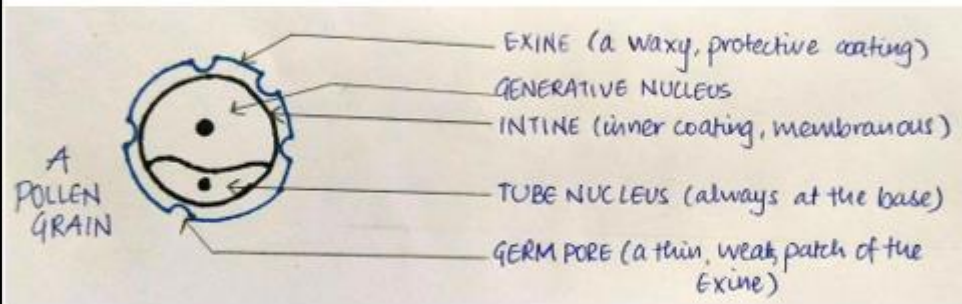 EXINE (a waxy, protective coating)
GENERATIVE NUCLEUS
INTINE (inner coating, membranous)
TUBE NUCLEUS (always at the base)
GERM PORE (a thin, weak patch of the
Exine)
A
POLLEN
GRAIN